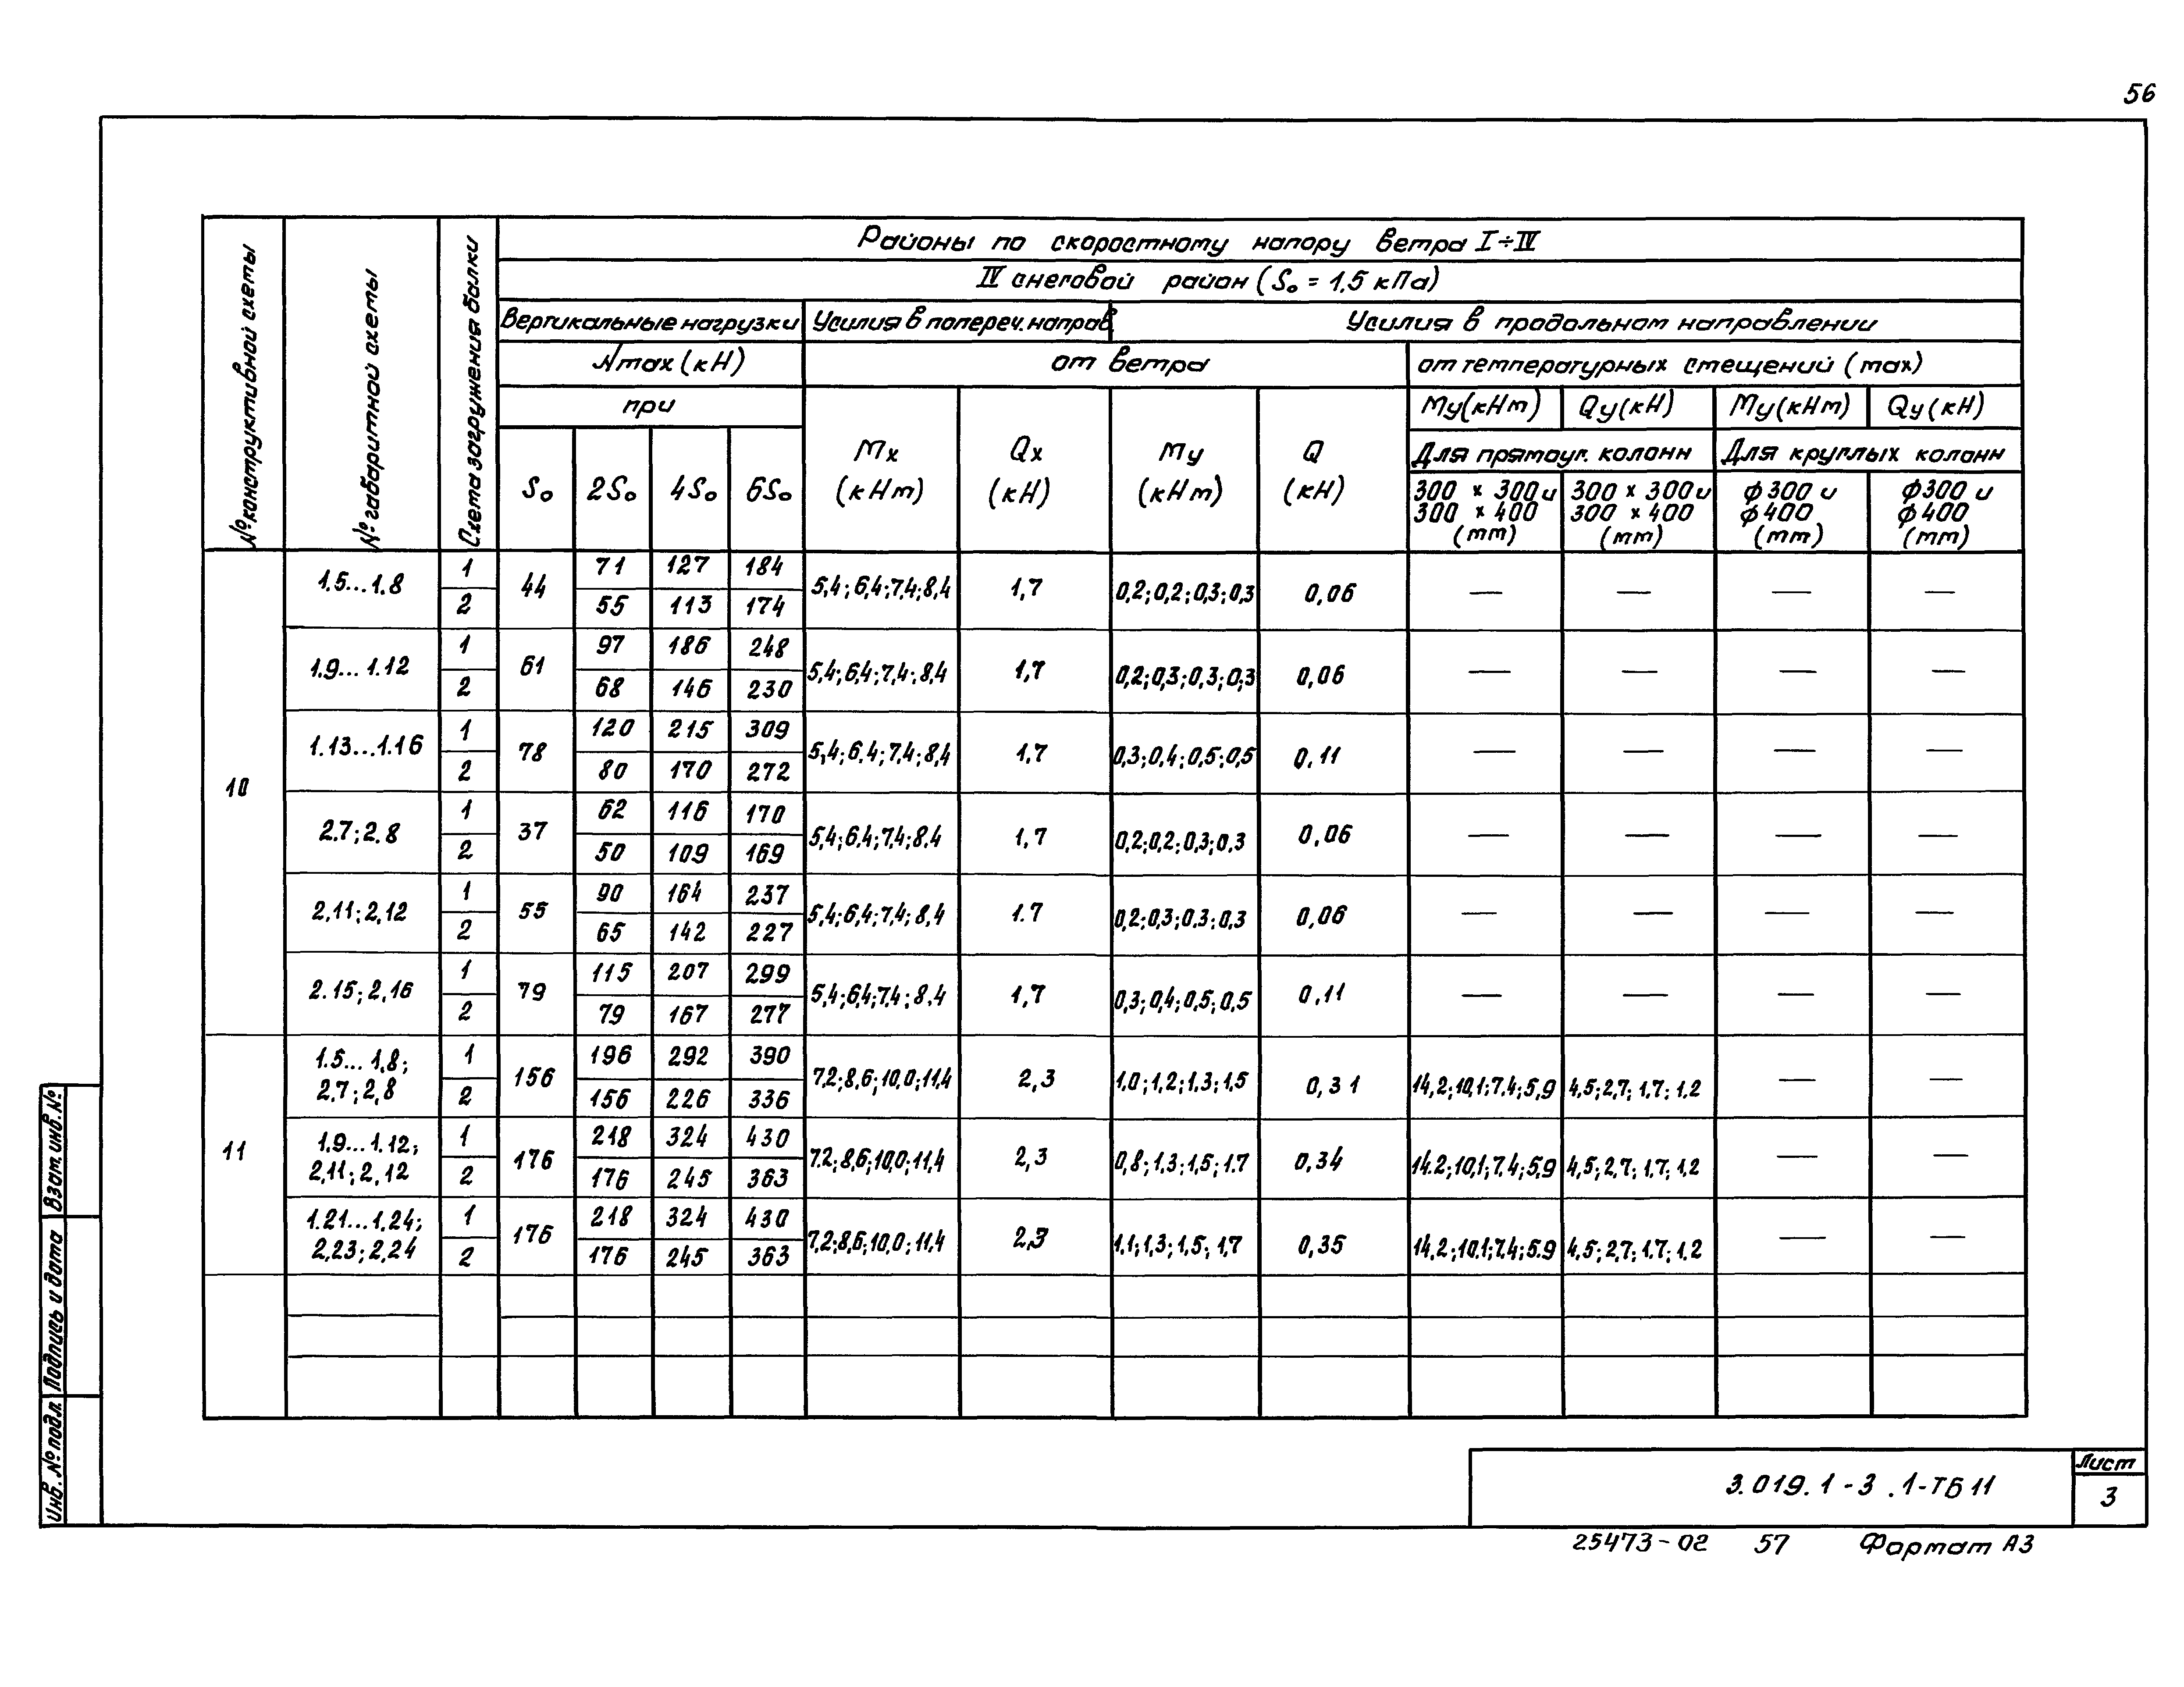 56
Районы по скоростному напору ветра I÷IV
IV снеговой район (S₀ = 1,5 кПа)
№ конструктивной схемы
№ габаритной схемы
Схема загружения балки
Вертикальные нагрузки
Усилия в попереч. направ.
Усилия в продольном направлении
Nmax (кН)
от ветра
от температурных смещений (max)
при
Mx (кНм)
Qx (кН)
My (кНм)
Q (кН)
My(кНм) Qy(кН) My(кНм) Qy(кН)
Для прямоуг. колонн
Для круглых колонн
S₀ 2S₀ 4S₀ 6S₀
300 × 300 и 300 × 400 (мм)
300 × 300 и 300 × 400 (мм)
ф300 и ф400 (мм)
ф300 и ф400 (мм)
10
1.5...1.8 1 44 71 127 184 5,4;6,4;7,4;8,4 1,7 0,2;0,2;0,3;0,3 0,06 — — — —
2 55 113 174
1.9...1.12 1 61 97 186 248 5,4;6,4;7,4;8,4 1,7 0,2;0,3;0,3;0,3 0,06 — — — —
2 68 146 230
1.13...1.16 1 78 120 215 309 5,4;6.4;7,4;8,4 1,7 0,3;0,4;0,5;0,5 0,11 — — — —
2 80 170 272
2.7;2.8 1 37 62 116 170 5,4;6.4;7,4;8.4 1,7 0,2;0,2;0,3;0,3 0,06 — — — —
2 50 109 169
2.11;2.12 1 55 90 164 237 5,4;6,4;7,4;8,4 1.7 0,2;0,3;0,3;0,3 0,06 — — — —
2 65 142 227
2.15;2.16 1 79 115 207 299 5,4;6,4;7,4;8,4 1,7 0,3;0,4;0,5;0,5 0,11 — — — —
2 79 167 277
11
1.5...1.8; 2.7;2.8 1 156 196 292 390 7,2;8,6;10,0;11,4 2,3 1,0;1,2;1,3;1,5 0,31 14,2;10,1;7,4;5,9 4,5;2,7;1,7;1,2 — —
2 156 226 336
1.9...1.12; 2,11;2,12 1 176 218 324 430 7.2;8,6;10,0;11,4 2,3 0,8;1,3;1,5;1,7 0,34 14.2;10,1;7,4;5,9 4,5;2,7;1,7;1,2 — —
2 176 245 363
1.21...1.24; 2,23;2,24 1 176 218 324 430 7,2;8,6;10,0;11,4 2,3 1,1;1,3;1,5;1,7 0,35 14,2;10,1;7,4;5.9 4,5;2,7;1,7;1,2 — —
2 176 245 363
Взам. инв. №
Подпись и дата
Инв. № подл.
3.019.1-3.1-ТБ11
Лист
3
25473-02 57 Формат А3